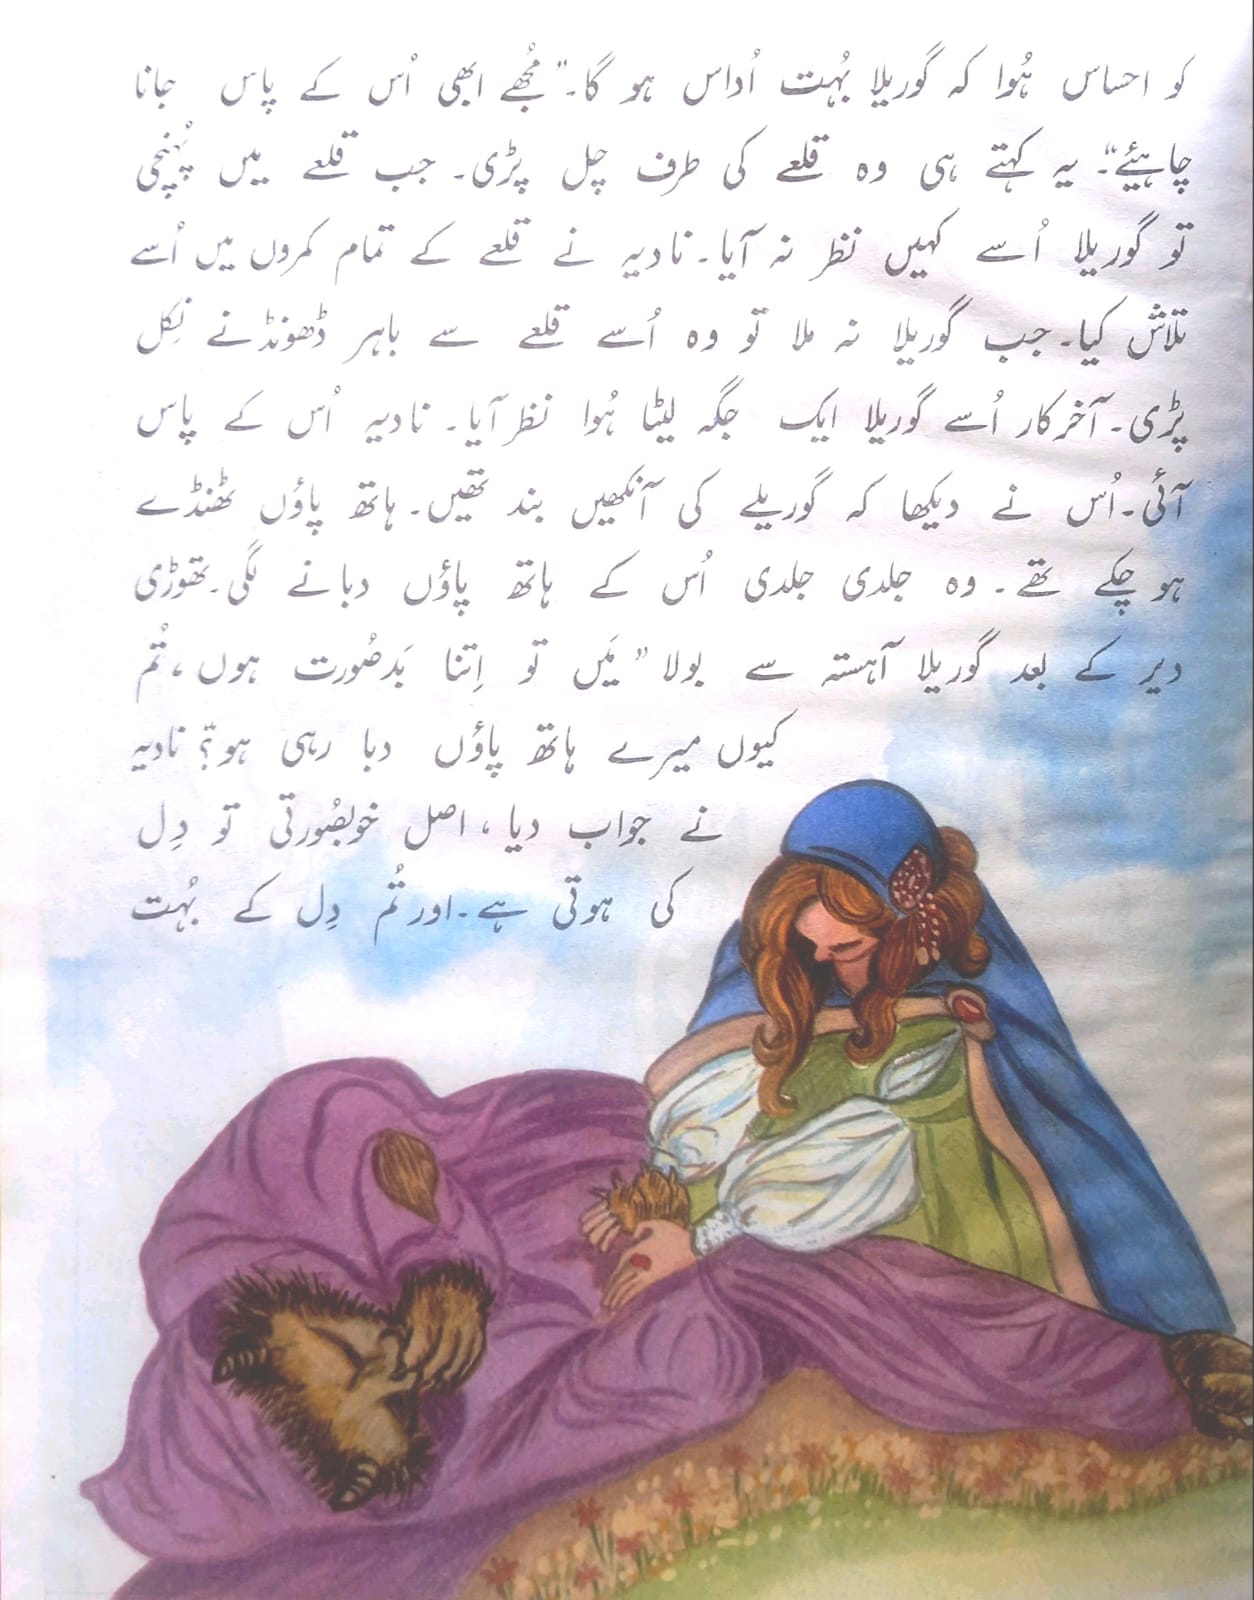 کو احساس ہُوا کہ گوریلا بہُت اُداس ہو گا۔"مُجھے ابھی اُس کے پاس جانا
چاہیئے"۔ یہ کہتے ہی وہ قلعے کی طرف چل پڑی۔ جب قلعے میں پہُنچی
تو گوریلا اُسے کہیں نظر نہ آیا۔ نادیہ نے قلعے کے تمام کمروں میں اُسے
تلاش کیا۔ جب گوریلا نہ ملا تو وہ اُسے قلعے سے باہر ڈھونڈنے نِکل
پڑی۔ آخرکار اُسے گوریلا ایک جگہ لیٹا ہُوا نظر آیا۔ نادیہ اُس کے پاس
آئی۔ اُس نے دیکھا کہ گوریلے کی آنکھیں بند تھیں۔ ہاتھ پاؤں ٹھنڈے
ہو چکے تھے۔ وہ جلدی جلدی اُس کے ہاتھ پاؤں دبانے لگی۔ تھوڑی
دیر کے بعد گوریلا آہستہ سے بولا "مَیں تو اِتنا بَدصُورت ہوں، تُم
کیوں میرے ہاتھ پاؤں دبا رہی ہو؟" نادیہ
نے جواب دیا، اصل خوبصُورتی تو دِل
کی ہوتی ہے۔ اور تُم دِل کے بہُت